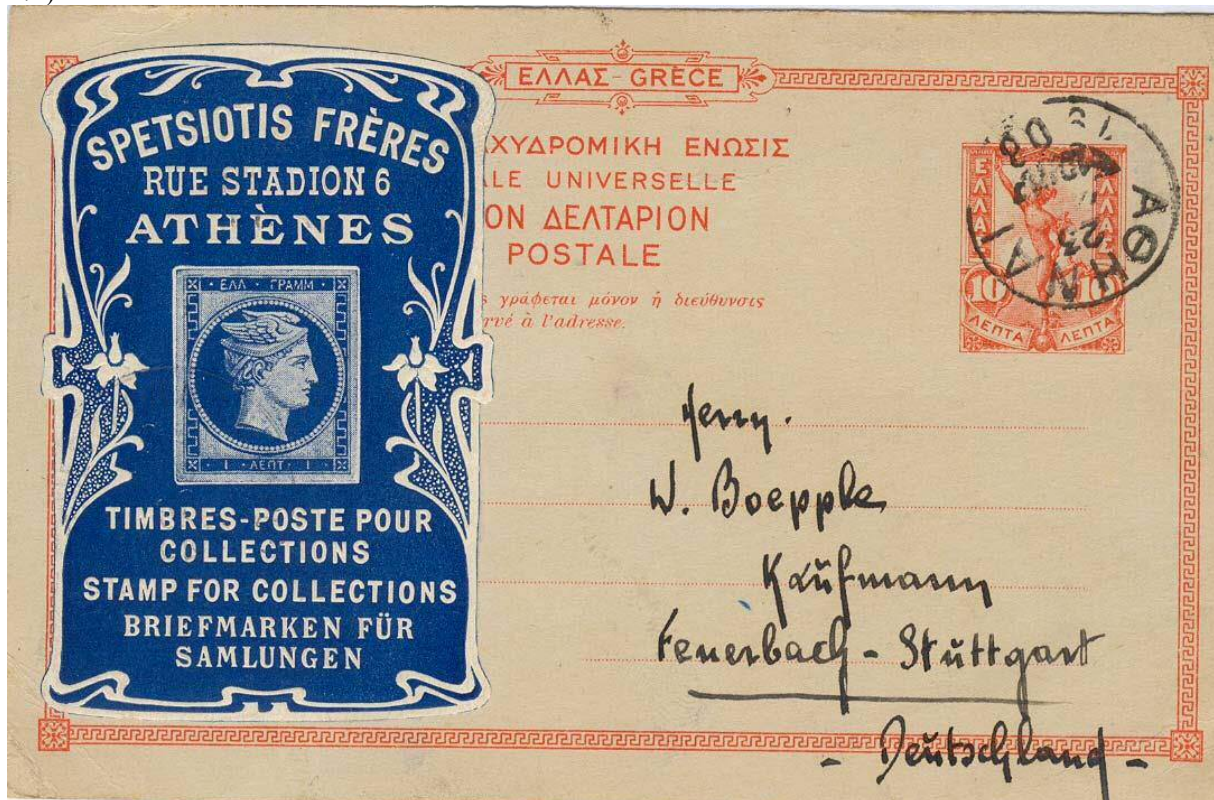 SPETSIOTIS FRÈRES
RUE STADION 6
ATHÈNES
ΕΛΛ · ΓΡΑΜΜ
1 · ΛΕΠΤ · 1
TIMBRES-POSTE POUR
COLLECTIONS
STAMP FOR COLLECTIONS
BRIEFMARKEN FÜR
SAMLUNGEN
ΕΛΛΑΣ-GRÈCE
ΧΥΔΡΟΜΙΚΗ ΕΝΩΣΙΣ
LE UNIVERSELLE
ΟΝ ΔΕΛΤΑΡΙΟΝ
POSTALE
ς γράφεται μόνον ἡ διεύθυνσις
rvé à l'adresse.
ΕΛΛΑΣ
ΕΛΛΑΣ
10 10
ΛΕΠΤΑ ΛΕΠΤΑ
ΑΘΗΝΑΙ
23
Herrn.
W. Boepple
Kaufmann
Feuerbach - Stuttgart
- Deutschland -